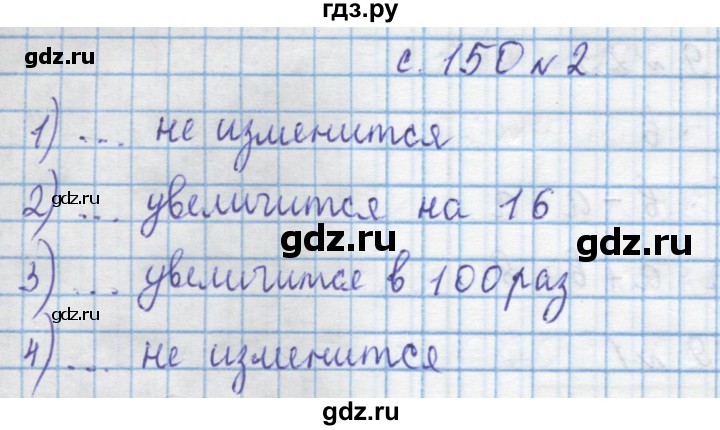 гдз.ру
gdz.ru
с. 150 № 2
1) ... не изменится
gdz.ru
2) ... увеличится на 16
gdz.ru
gdz.ru
3) ... увеличится в 100 раз
gdz.ru
4) ... не изменится
gdz.ru